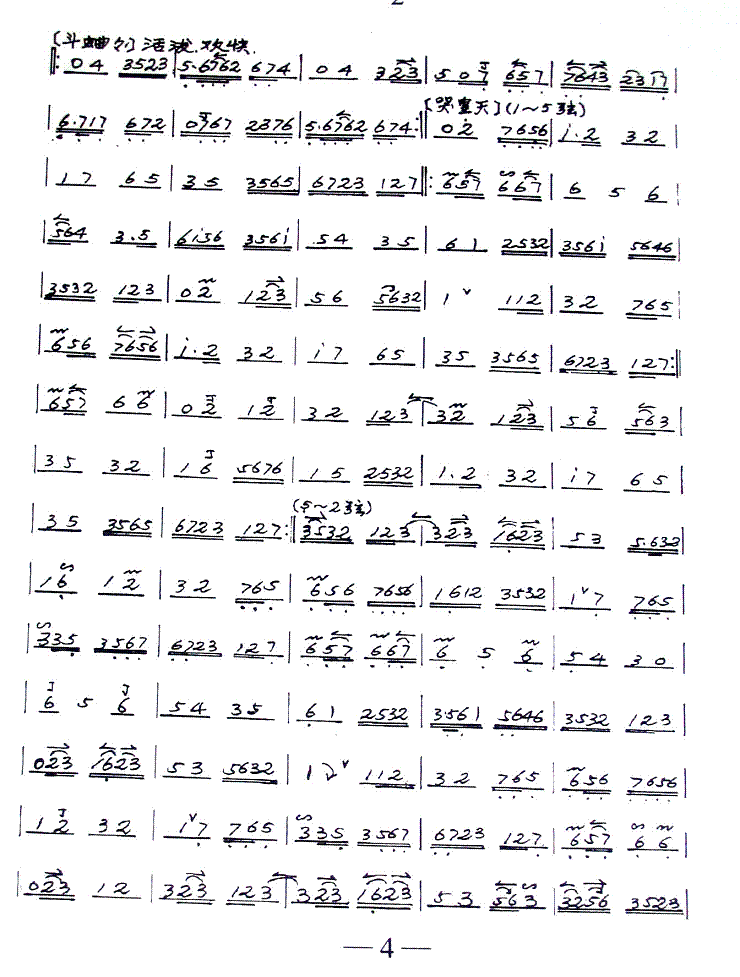 [斗曲儿] 活泼.欢快.
‖: 04 3523 | 5·6762 674 | 04 323 | 507 657 | 7643 2317 |
| 6·717 672 | 0767 2376 | 5·6762 674 :‖ [哭皇天] (1～5弦) 02 7656 | i·2 32 |
| 17 65 | 35 3565 | 6723 127 ‖: 657 667 | 6 5 6 |
| 564 3·5 | 6i56 356i | 54 35 | 61 2532 | 356i 5646 |
| 3532 123 | 02 123 | 56 5632 | 1ᵛ 112 | 32 765 |
| 656 7656 | i·2 32 | i7 65 | 35 3565 | 6723 127 :‖
| 657 66 | 02 12 | 32 123 | 32 123 | 56 563 |
| 35 32 | 16 5676 | 15 2532 | 1·2 32 | i7 65 |
| 35 3565 | 6723 127 :‖ (5～2弦) 3532 123 | 323 1623 | 53 5·632 |
| 16 12 | 32 765 | 656 7656 | 1612 3532 | 1ᵛ7 765 |
| 335 3567 | 6723 127 | 657 667 | 6 5 6 | 54 30 |
| 6 5 6 | 54 35 | 61 2532 | 3·561 5646 | 3532 123 |
| 023 1623 | 53 5632 | 1ᵛ 112 | 32 765 | 656 7656 |
| 12 32 | 1ᵛ7 765 | 335 3567 | 6723 127 | 657 66 |
| 023 12 | 323 123 | 323 1623 | 53 563 | 3256 3523 |
— 4 —